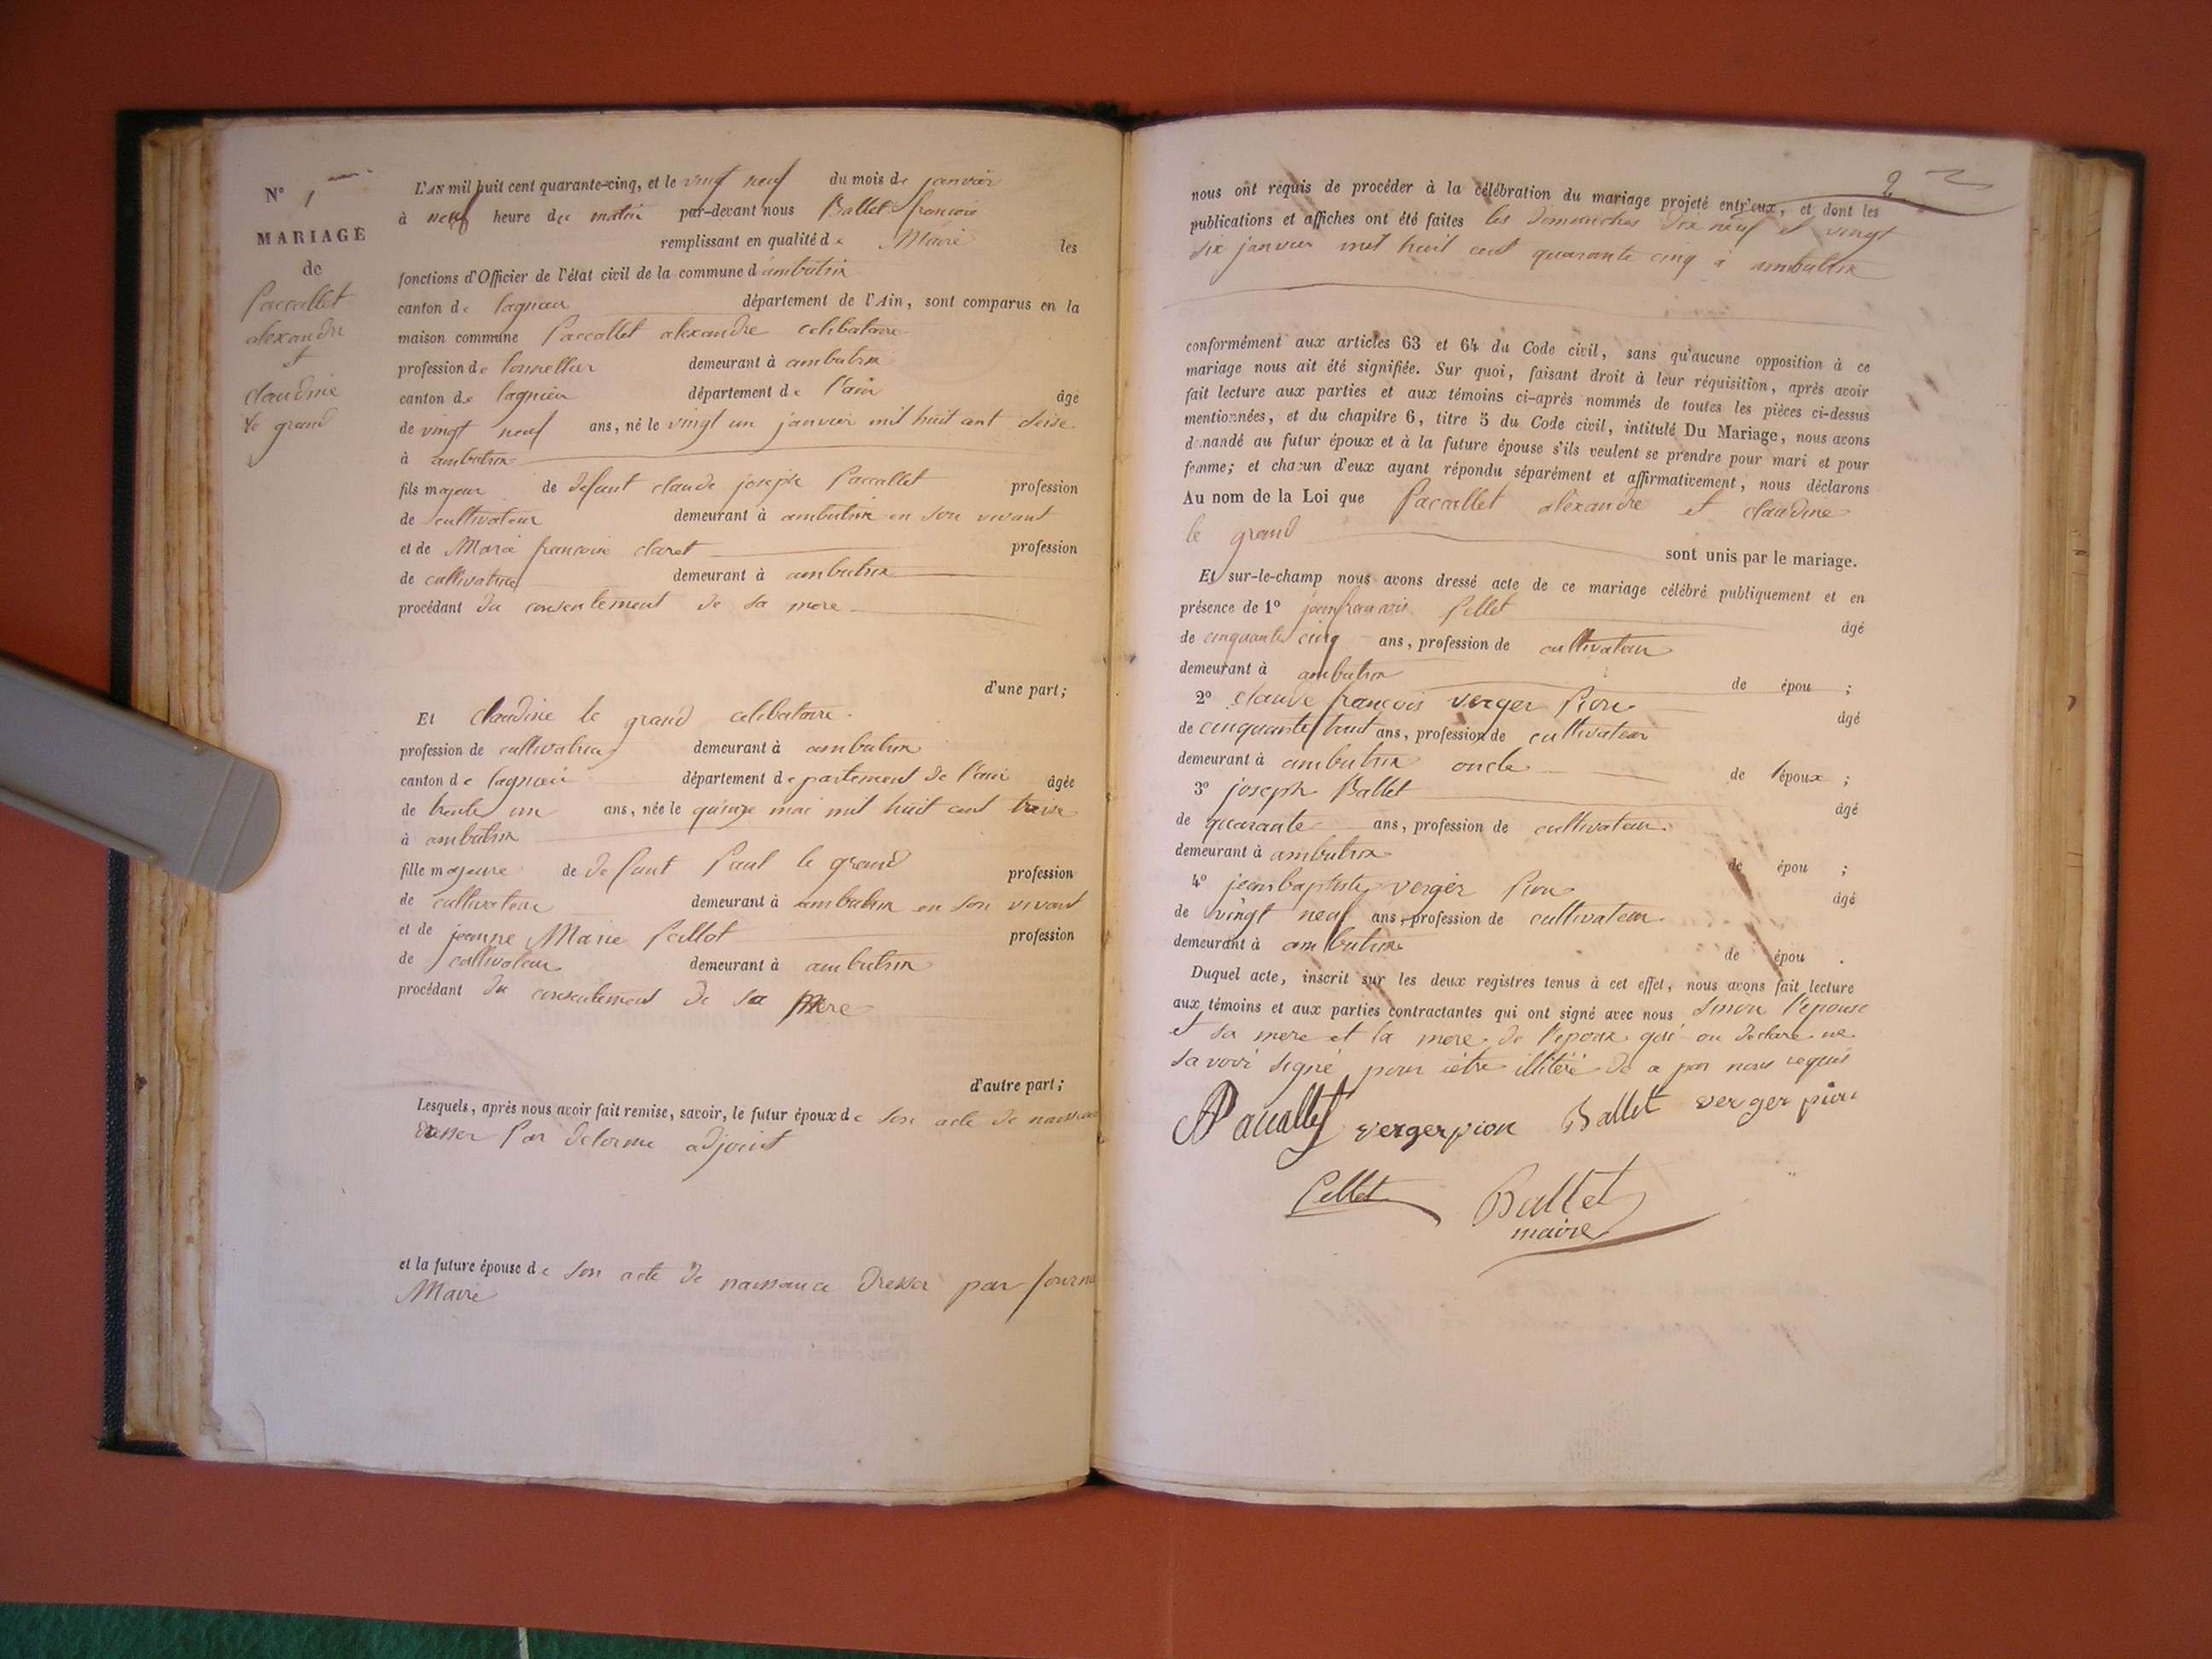 N° 1
MARIAGE
de
Paccallet
alexandre
et
claudine
le grand
L'AN mil huit cent quarante-cinq, et le vingt neuf du mois de janvier
à neuf heure du matin par-devant nous Ballet francois
remplissant en qualité de Maire les
fonctions d'Officier de l'état civil de la commune d'ambutrix
canton de lagnieu département de l'Ain, sont comparus en la
maison commune Paccallet alexandre celibataire
profession de tonnellier demeurant à ambutrix
canton de lagnieu département de l'ain âgé
de vingt neuf ans, né le vingt un janvier mil huit cent seise
à ambutrix
fils majeur de defunt claude joseph Paccallet profession
de cultivateur demeurant à ambutrix en son vivant
et de Marie francoise claret profession
de cultivatrice demeurant à ambutrix
procédant du consentement de sa mere
d'une part;
Et claudine le grand celibataire
profession de cultivatrice demeurant à ambutrix
canton de lagnieu département departement de l'ain âgée
de trente un ans, née le quinze mai mil huit cent treise
à ambutrix
fille majeure de defunt Paul le grand profession
de cultivateur demeurant à ambutrix en son vivant
et de jeanne Marie Pellot profession
de cultivateur demeurant à ambutrix
procédant du consentement de sa mere
d'autre part;
Lesquels, après nous avoir fait remise, savoir, le futur époux de son acte de naissance
dresser Par delorme adjoint
et la future épouse de son acte de naissance dresser par
Maire
2
nous ont requis de procéder à la célébration du mariage projeté entr'eux, et dont les
publications et affiches ont été faites les dimanches dix neuf et vingt
six janvier mil huit cent quarante cinq à ambutrix
conformément aux articles 63 et 64 du Code civil, sans qu'aucune opposition à ce
mariage nous ait été signifiée. Sur quoi, faisant droit à leur réquisition, après avoir
fait lecture aux parties et aux témoins ci-après nommés de toutes les pièces ci-dessus
mentionnées, et du chapitre 6, titre 5 du Code civil, intitulé Du Mariage, nous avons
demandé au futur époux et à la future épouse s'ils veulent se prendre pour mari et pour
femme; et chacun d'eux ayant répondu séparément et affirmativement, nous déclarons
Au nom de la Loi que Paccallet alexandre et claudine
le grand
sont unis par le mariage.
Et sur-le-champ nous avons dressé acte de ce mariage célébré publiquement et en
présence de 1° jean francois Pellet âgé
de cinquante cinq ans, profession de cultivateur
demeurant à ambutrix de épou ;
2° claude françois verger Pion âgé
de cinquante huit ans, profession de cultivateur
demeurant à ambutrix oncle de l'époux ;
3° joseph Ballet âgé
de quarante ans, profession de cultivateur
demeurant à ambutrix de épou ;
4° jean baptiste verger Pion âgé
de vingt neuf ans, profession de cultivateur
demeurant à ambutrix de épou .
Duquel acte, inscrit sur les deux registres tenus à cet effet, nous avons fait lecture
aux témoins et aux parties contractantes qui ont signé avec nous sinon l'epouse
et sa mere et la mere de l'epoux qui on declare ne
savoir signé pour être illitéré de a par nous requis
Paccallet vergerpion Ballet verger pion
Pellet Ballet
maire